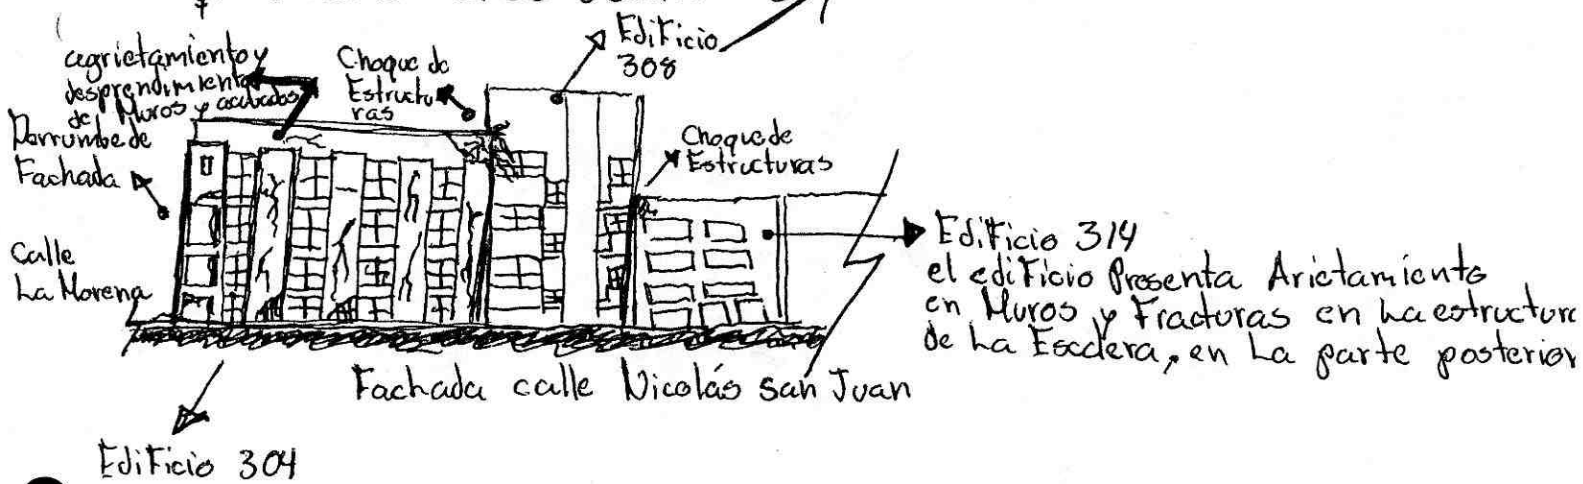 agrietamiento y
desprendimiento
de Muros y acabados
Choque de
Estructu
ras
Edificio
308
Derrumbe de
Fachada
Choque de
Estructuras
Calle
La Morena
Edificio 314
el edificio Presenta Arietamiento
en Muros y Fracturas en La estructura
de La Escalera, en La parte posterior
Fachada calle Nicolás San Juan
Edificio 304